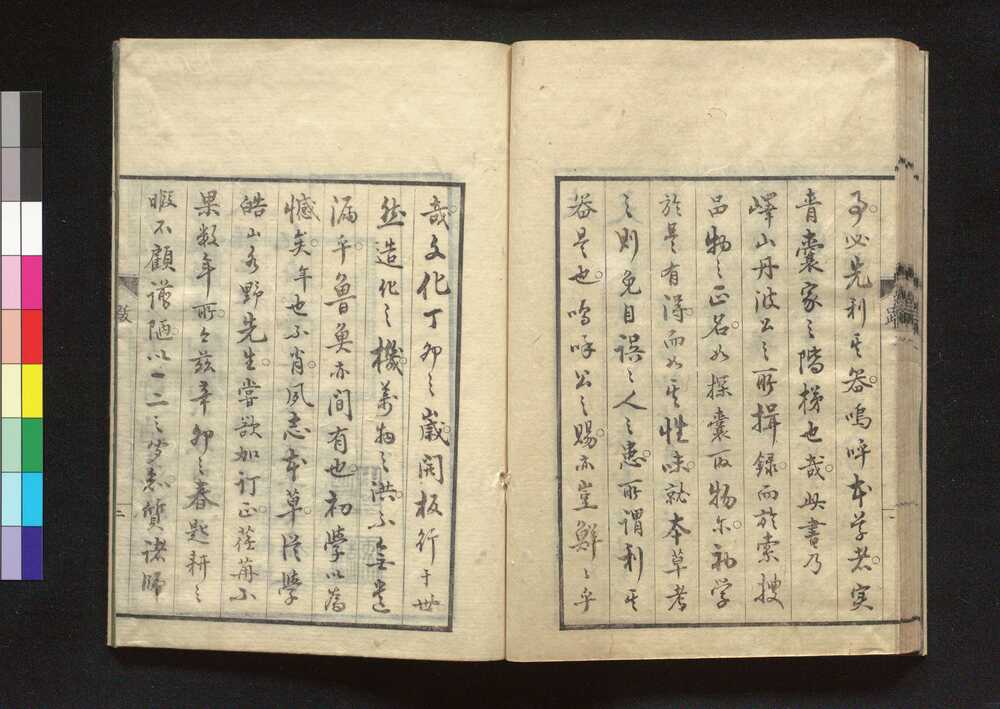 事必先利其器嗚呼本草者実
青囊家之階梯也哉此書乃
嶧山丹波公之所揖録而於索捜
品物之正名如探囊取物尓初学
於是有得而如其性味就本草考
之則免自誤之人之患所謂利其
器是也嗚呼公之賜亦豈鮮々乎
哉文化丁卯之歳開板行于世
然造化之機萬物之洪不無遺
漏乎魯魚亦間有也初學以為
憾矣年也不肖夙志本草従學
皓山水野先生嘗欲如訂正荏苒不
果数年所今茲辛卯之春匙耕之
暇不顧謭陋以一二之質諸師